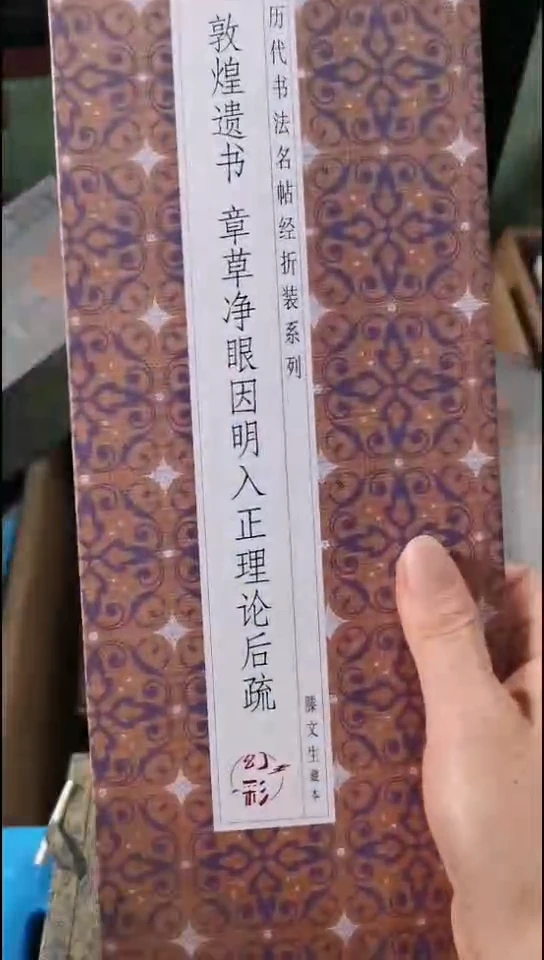 历代书法名帖经折装系列
敦煌遗书 章草净眼因明入正理论后疏
滕文生藏本
幻彩